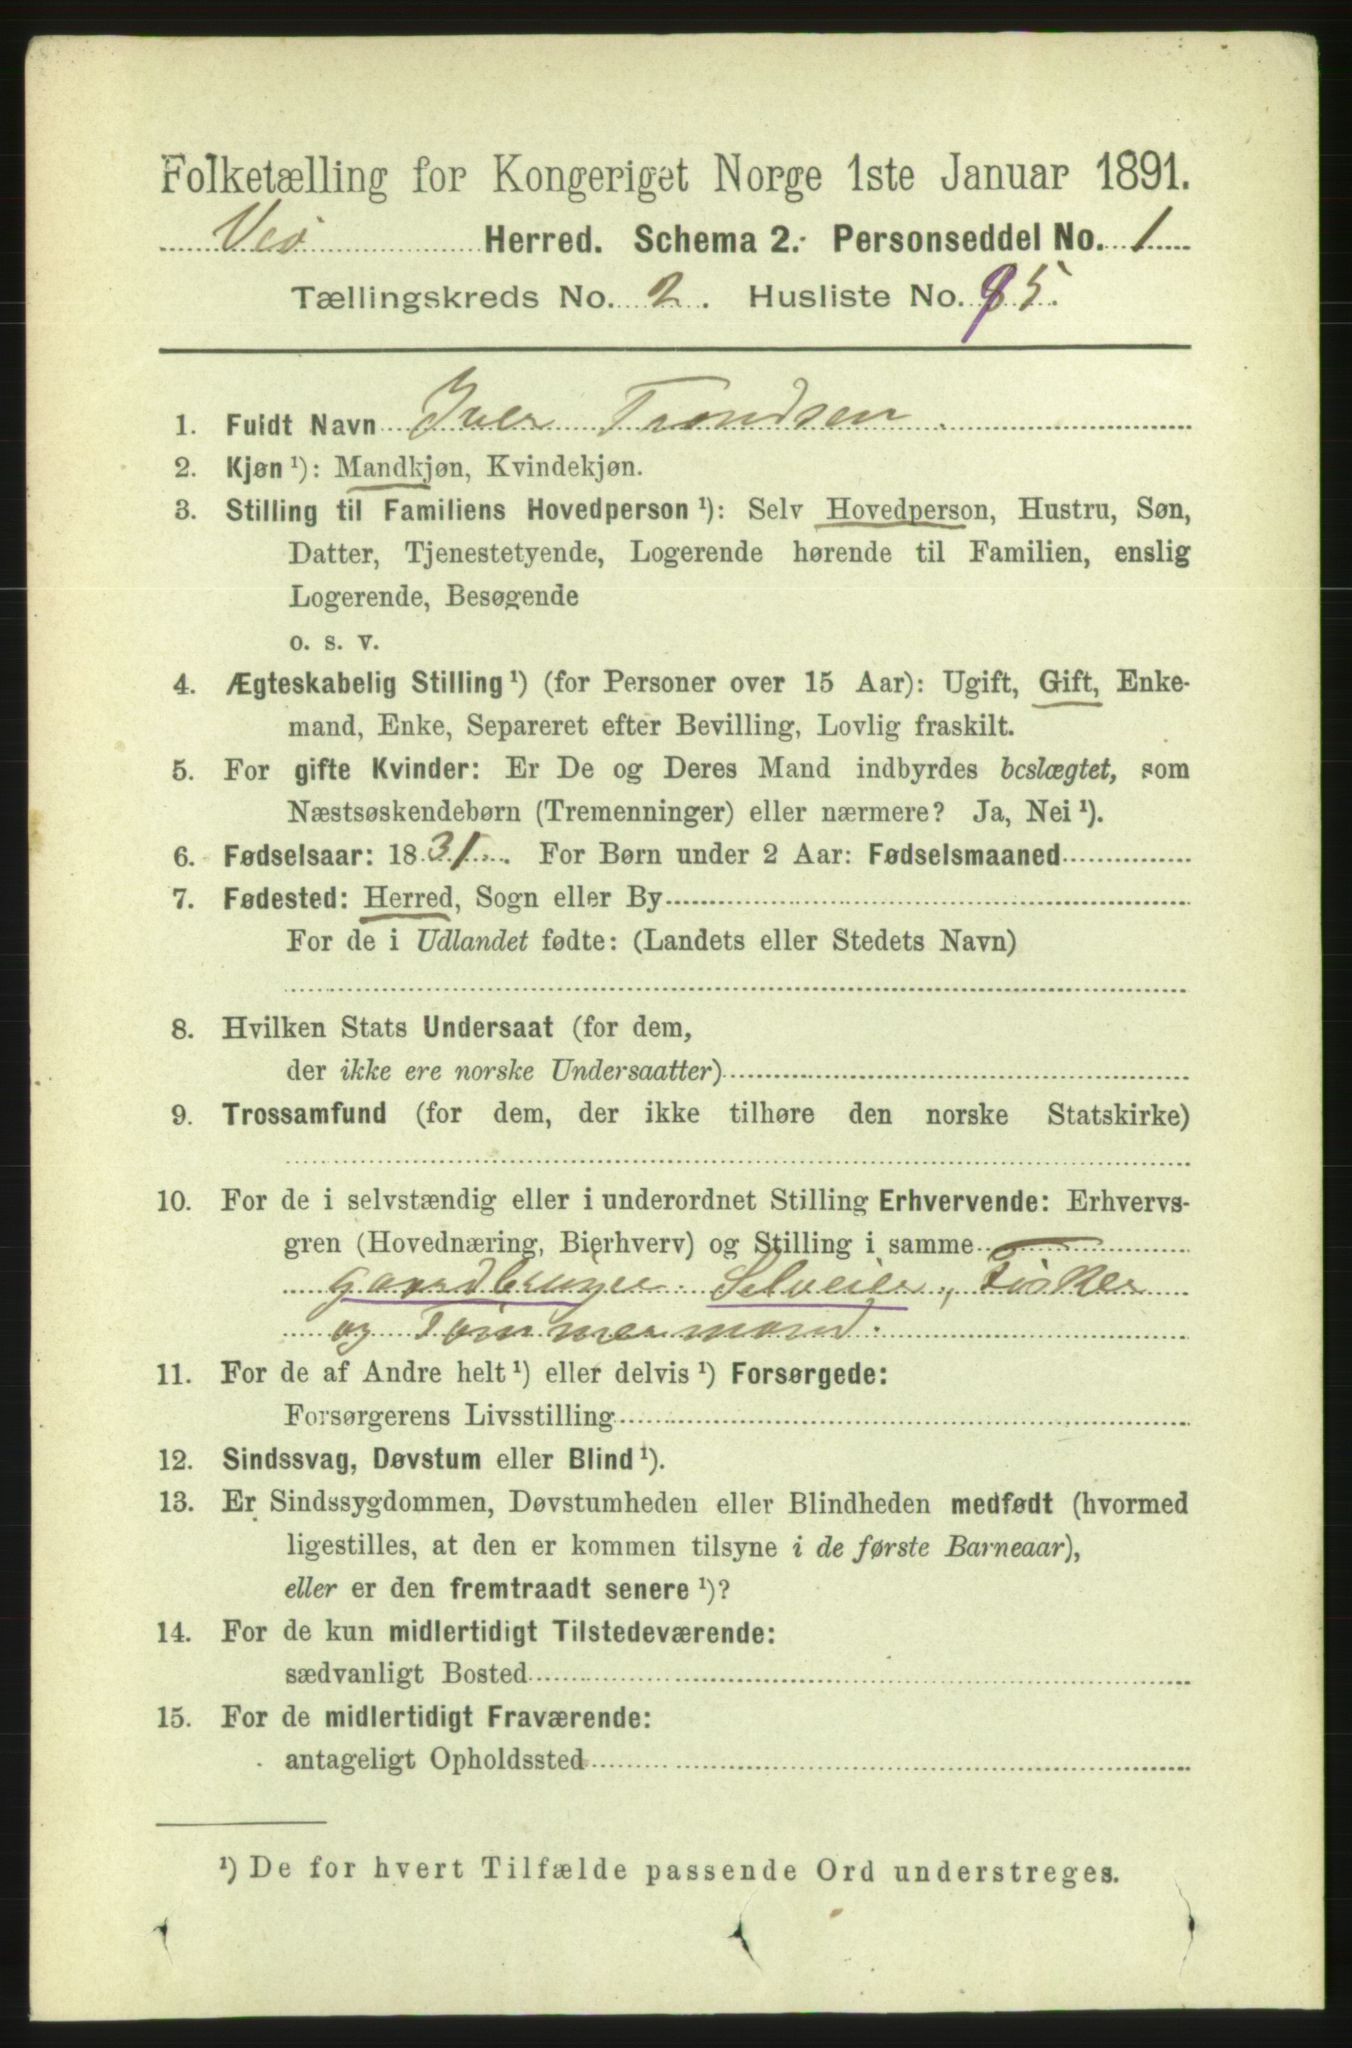 Folketælling for Kongeriget Norge 1ste Januar 1891.
Veø Herred. Schema 2. Personseddel No. 1
Tællingskreds No. 2. Husliste No. 95.
1. Fuldt Navn Iver Trondsen.
2. Kjøn ¹): Mandkjøn, Kvindekjøn.
3. Stilling til Familiens Hovedperson ¹): Selv Hovedperson, Hustru, Søn,
Datter, Tjenestetyende, Logerende hørende til Familien, enslig
Logerende, Besøgende
o. s. v.
4. Ægteskabelig Stilling ¹) (for Personer over 15 Aar): Ugift, Gift, Enke-
mand, Enke, Separeret efter Bevilling, Lovlig fraskilt.
5. For gifte Kvinder: Er De og Deres Mand indbyrdes beslægtet, som
Næstsøskendebørn (Tremenninger) eller nærmere? Ja, Nei ¹).
6. Fødselsaar: 1831. For Børn under 2 Aar: Fødselsmaaned
7. Fødested: Herred, Sogn eller By
For de i Udlandet fødte: (Landets eller Stedets Navn)
8. Hvilken Stats Undersaat (for dem,
der ikke ere norske Undersaatter)
9. Trossamfund (for dem, der ikke tilhøre den norske Statskirke)
10. For de i selvstændig eller i underordnet Stilling Erhvervende: Erhvervs-
gren (Hovednæring, Bierhverv) og Stilling i samme
gaardbruger Selveier, Fisker
og Tømmermand.
11. For de af Andre helt ¹) eller delvis ¹) Forsørgede:
Forsørgerens Livsstilling
12. Sindssvag, Døvstum eller Blind ¹).
13. Er Sindssygdommen, Døvstumheden eller Blindheden medfødt (hvormed
ligestilles, at den er kommen tilsyne i de første Barneaar),
eller er den fremtraadt senere ¹)?
14. For de kun midlertidigt Tilstedeværende:
sædvanligt Bosted
15. For de midlertidigt Fraværende:
antageligt Opholdssted
¹) De for hvert Tilfælde passende Ord understreges.